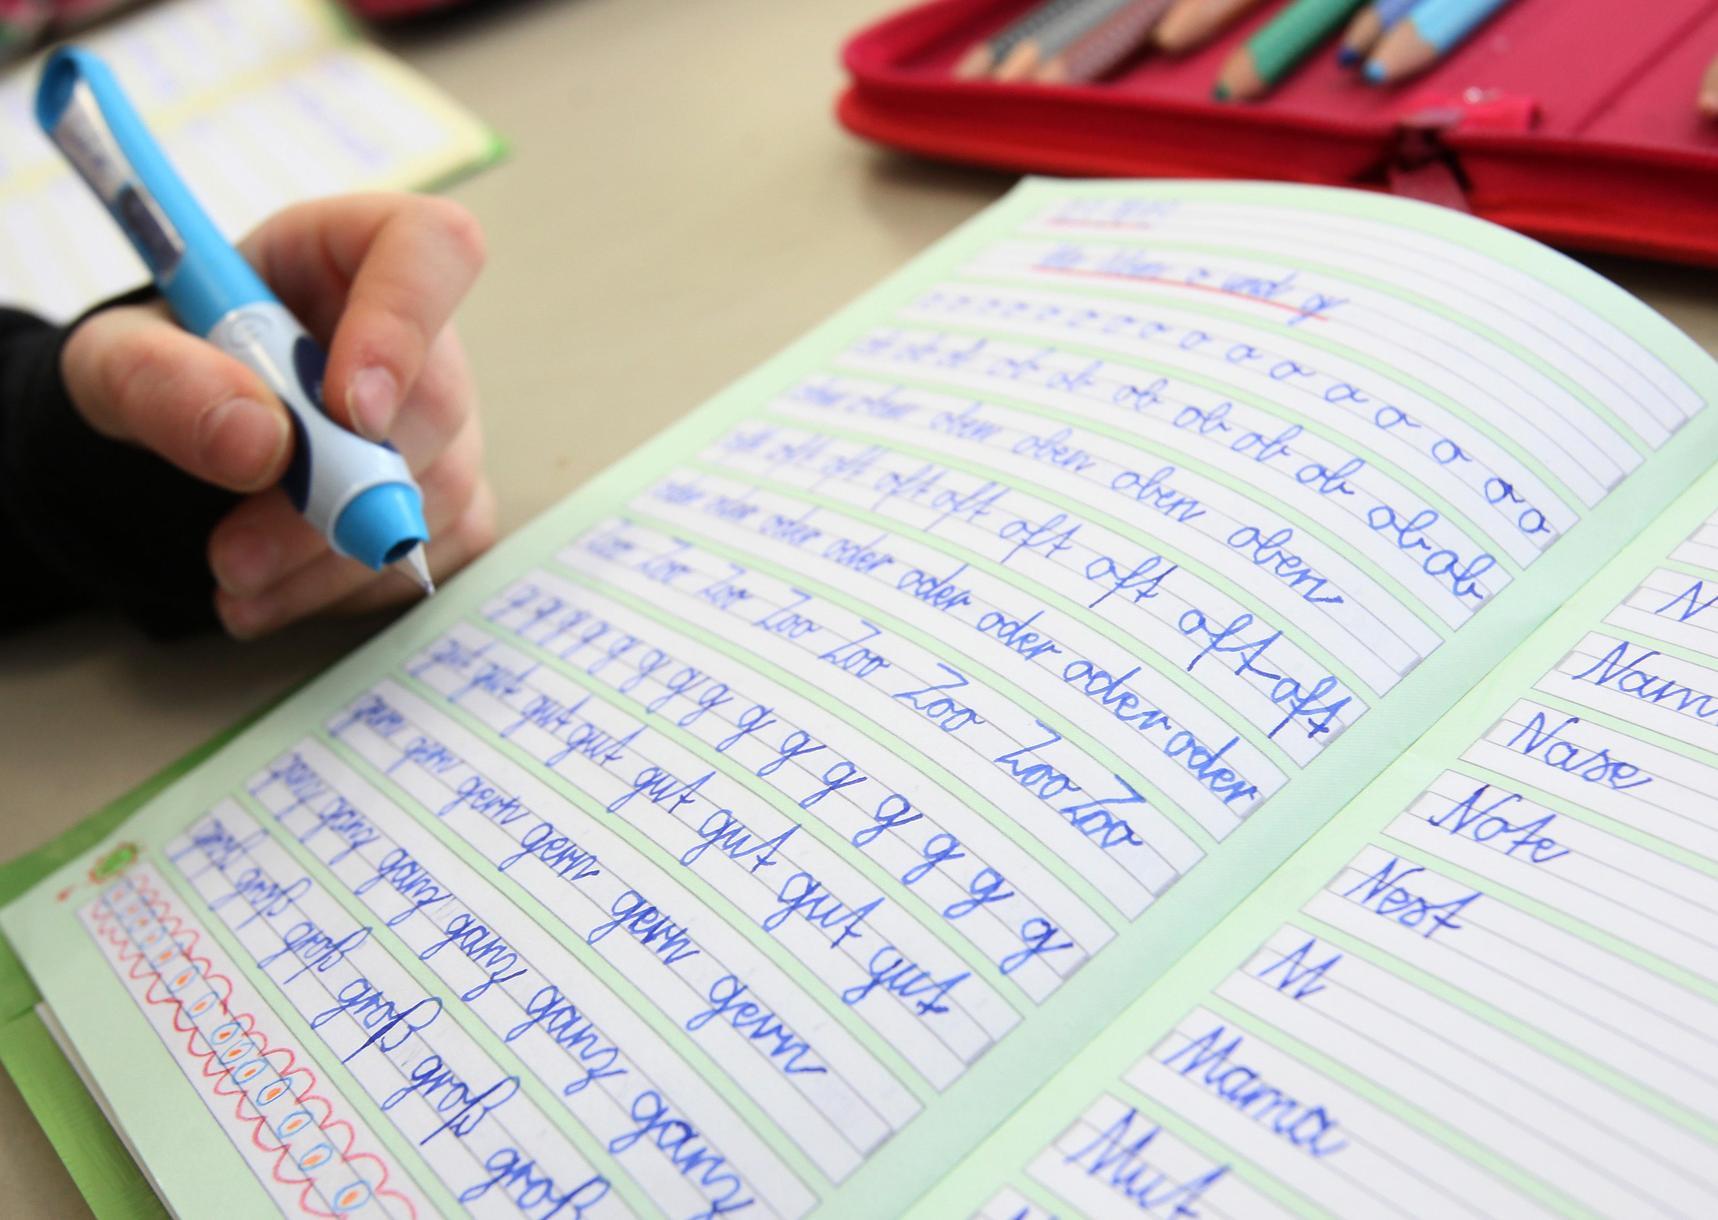 Wir üben o und g
o o o o o o o o o o o o o o
ob ob ob ob ob ob ob ob ob ob ob ob
oben oben oben oben oben oben
oft oft oft oft oft oft oft oft oft
oder oder oder oder oder oder oder oder
Zoo Zoo Zoo Zoo Zoo Zoo Zoo Zoo
g g g g g g g g g g g g g g
gut gut gut gut gut gut gut gut
gern gern gern gern gern gern
ganz ganz ganz ganz ganz ganz
groß groß groß groß groß groß
N
Nam
Nase
Note
Nest
M
Mama
Mut